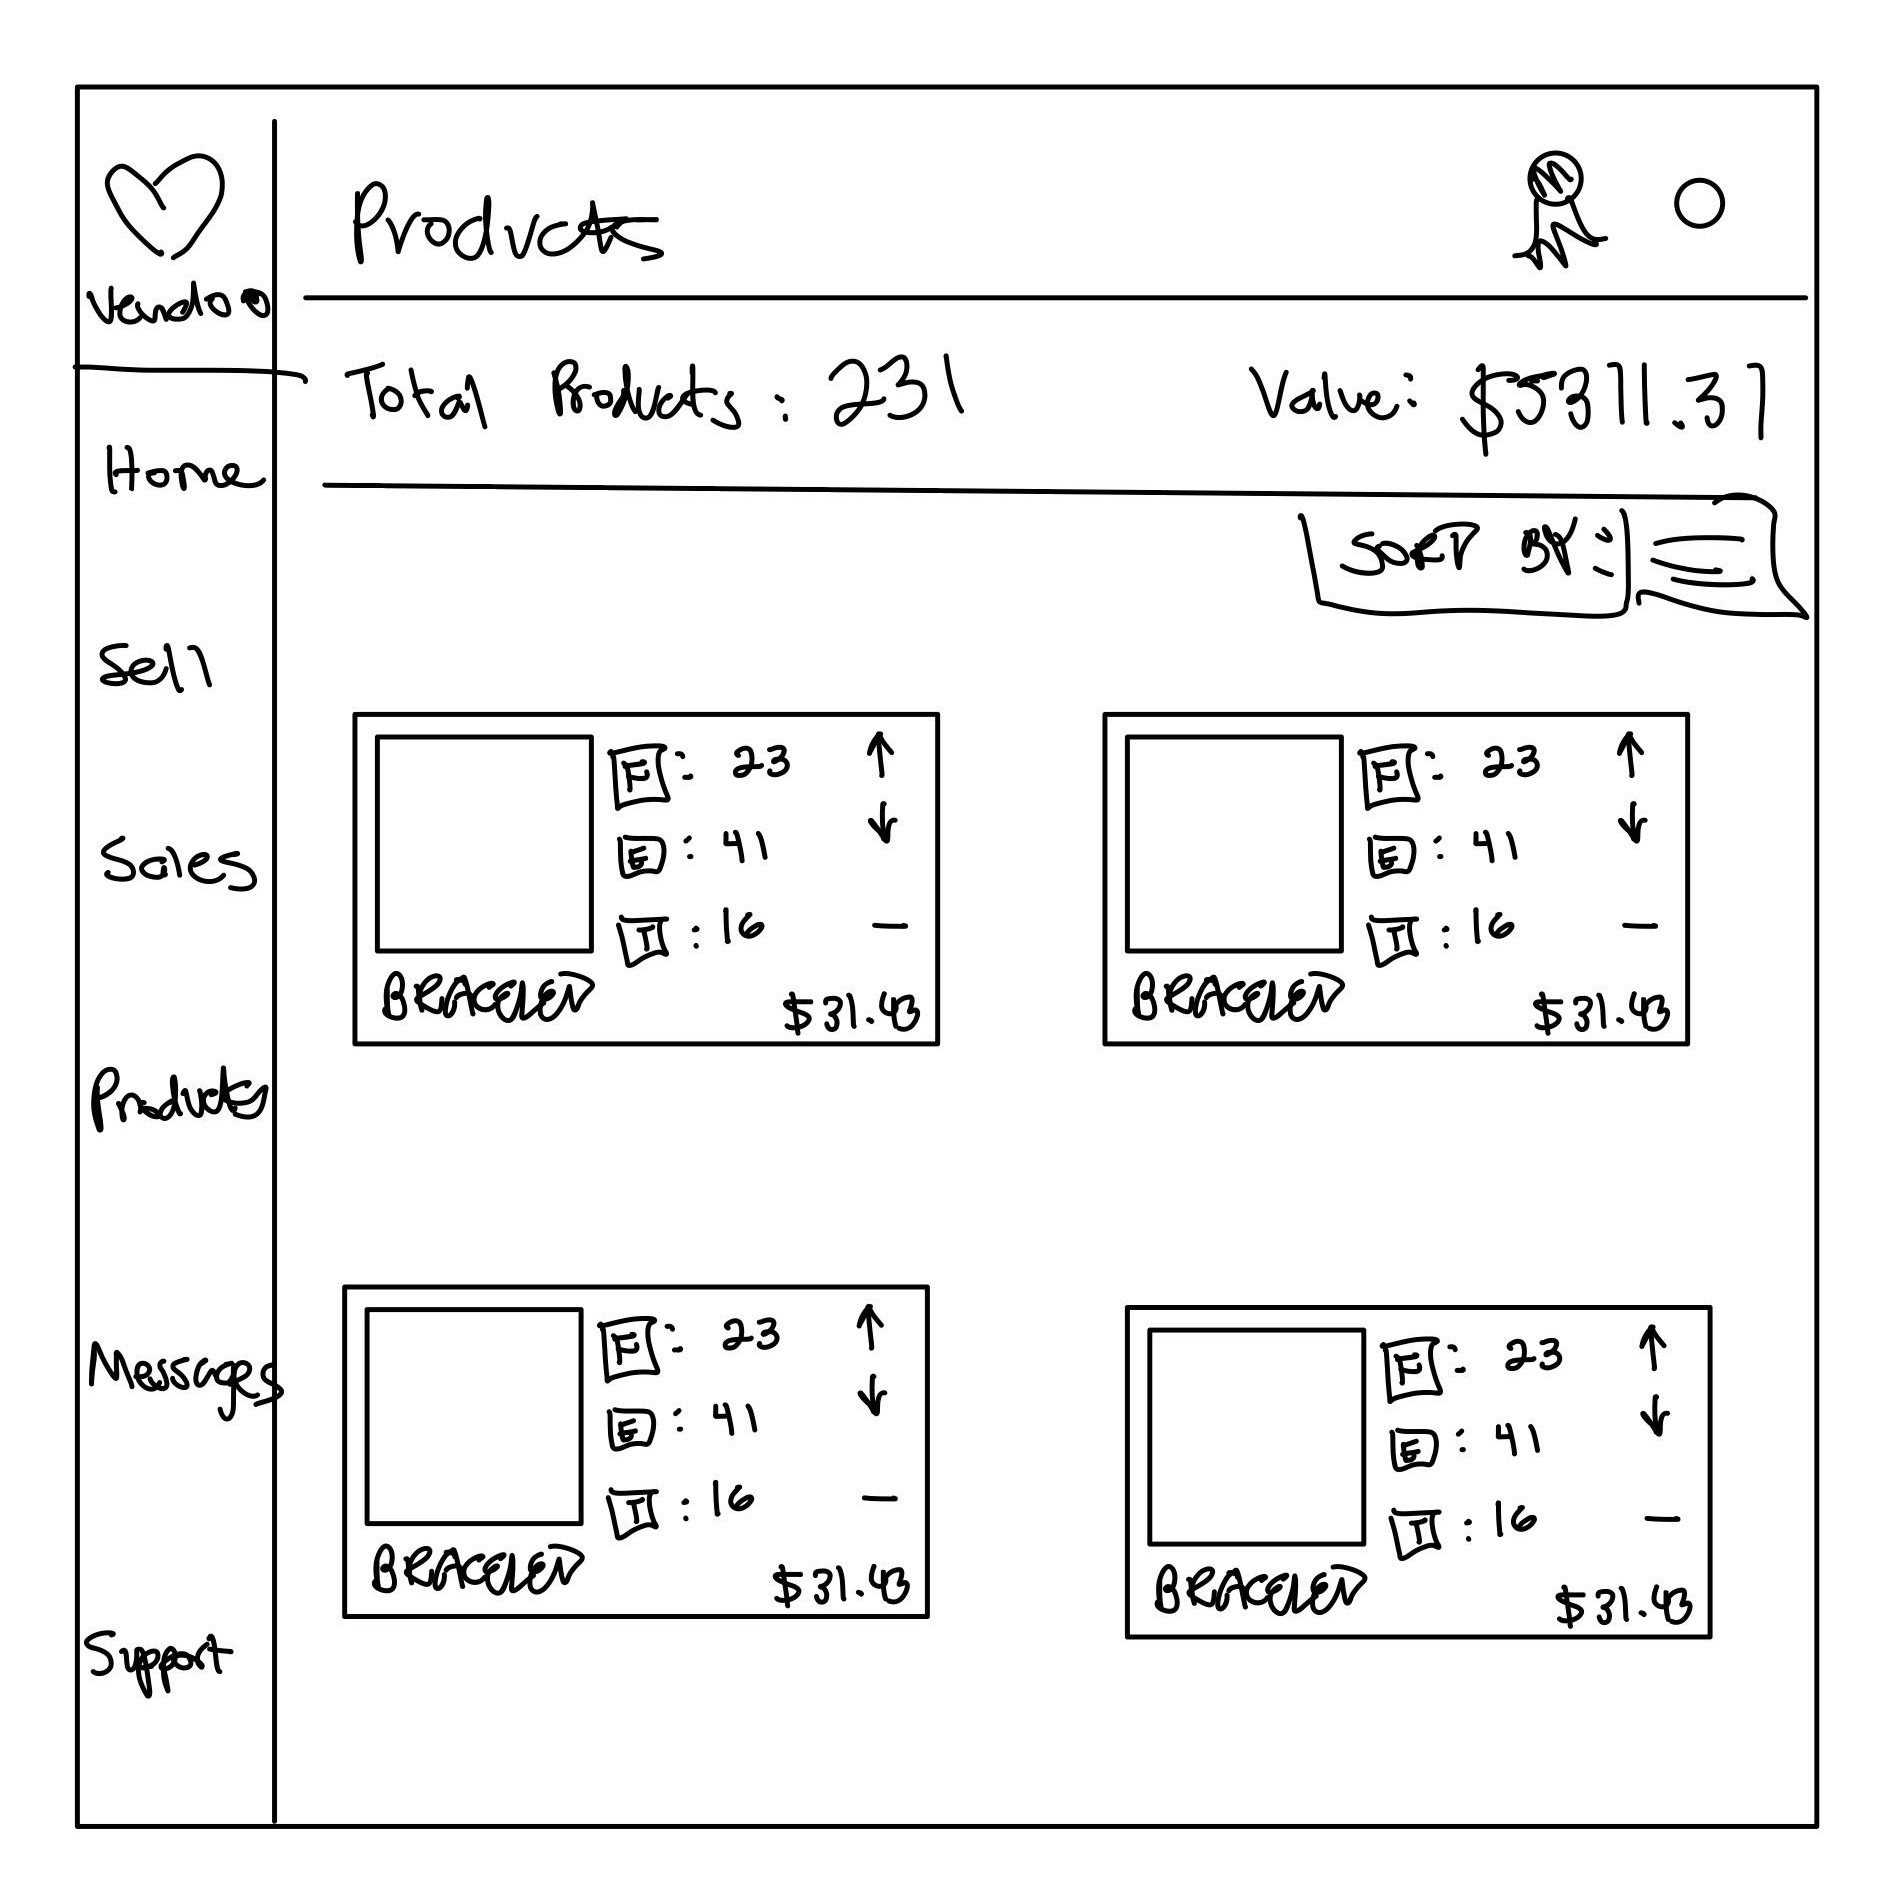 Vendoo
Home
Sell
Sales
Products
Messages
Support
Products
Total Products: 231
Value: $5311.31
SORT BY:
F: 23 ↑
E: 41 ↓
T: 16 —
BRACELET
$31.43
F: 23 ↑
E: 41 ↓
T: 16 —
BRACELET
$31.43
F: 23 ↑
E: 41 ↓
T: 16 —
BRACELET
$31.43
F: 23 ↑
E: 41 ↓
T: 16 —
BRACELET
$31.43